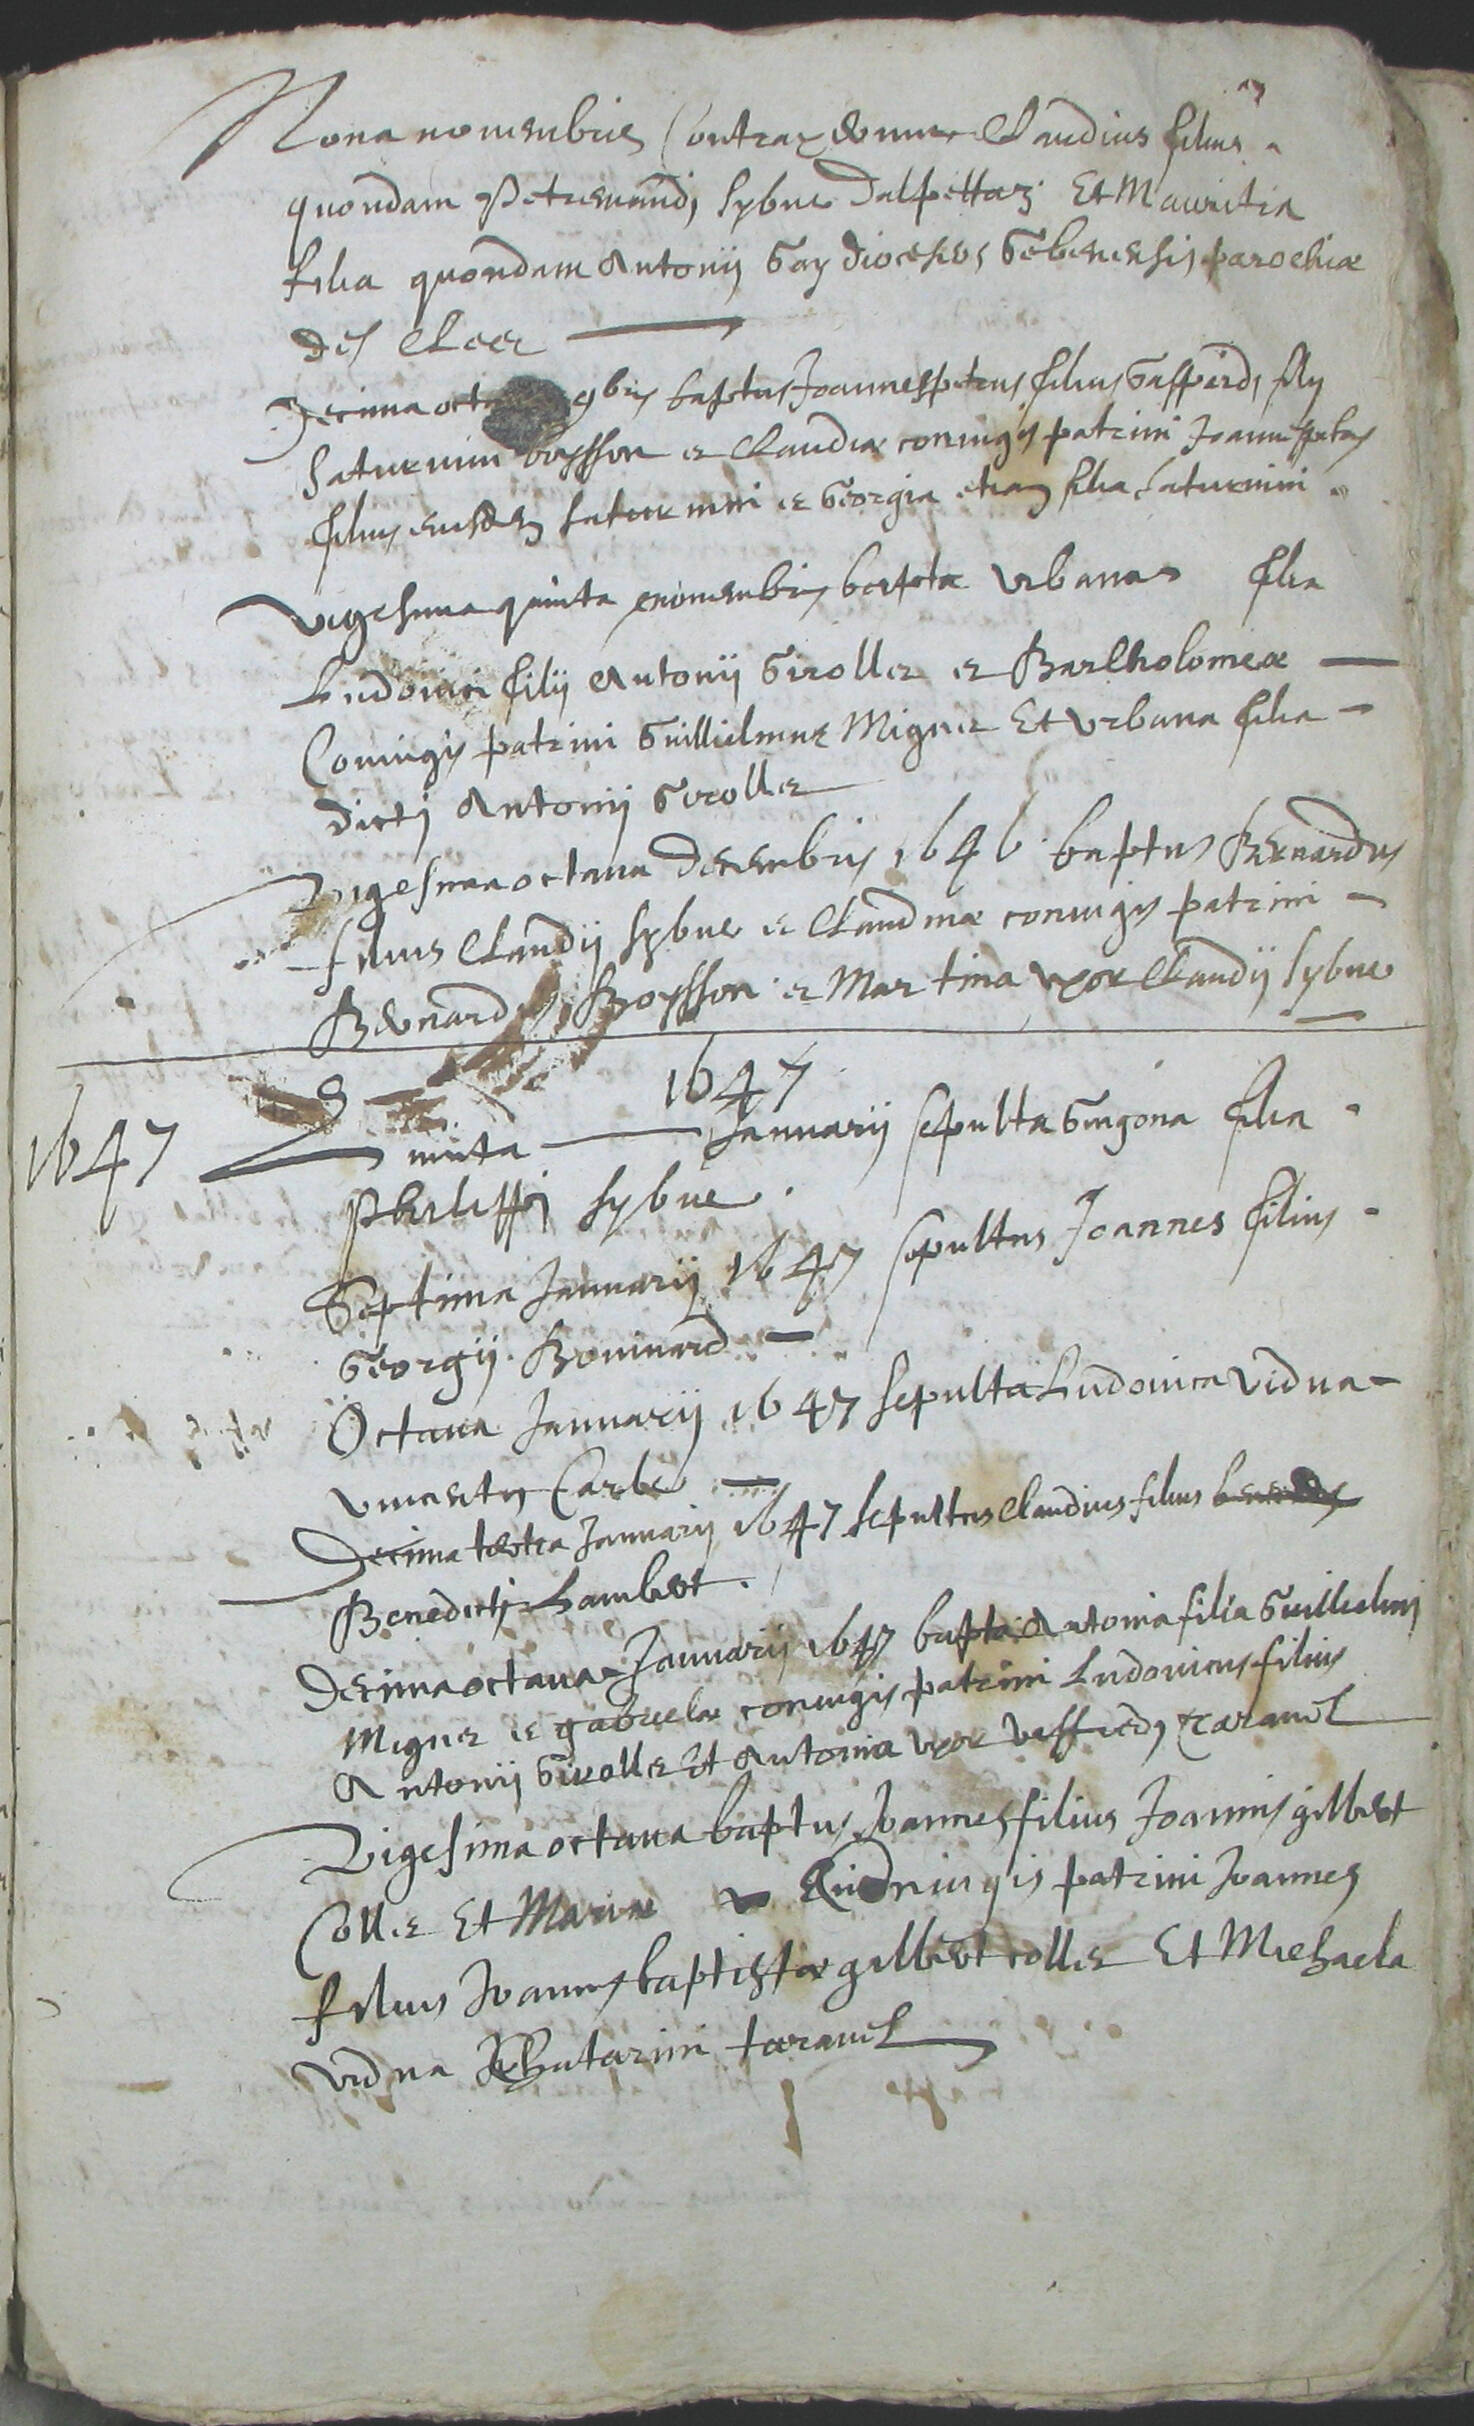 Nona nouembris Contraxerunt Claudius filius
quondam Petremandi Sybue dalpettaz Et Mauritia
filia quondam Antonij Gay diocesis Gebenensis parochiæ
des Clees
Decima octa 9bris baptus Joannespetrus filius Gasperdi filij
Saturnini boysson et Claudiæ coniugis patrini Joannespetrus
filius eiusdem Saturnini et Georgia etiam filia Saturnini
Vigesima quinta nouembris bapta Vrbana filia
Ludouici filij Antonij Girollet et Bartholomeæ
Coniugis patrini Guillielmus Mignet Et Vrbana filia
dicti Antonij Girollet
Vigesima octaua decembris 1646 baptus Bernardus
filius Claudij Sybue et Claudinæ coniugis patrini
Bernardus Boysson et Martina vxor Claudij Sybue
1647
1647 Quinta Januarij sepulta Guigona filia
Philippi Sybue
Septima Januarij 1647 sepultus Joannes filius
Georgij Bouinard
Octaua Januarij 1647 sepulta Ludouica vidua
vincentij Carle
Decima tertia Januarij 1647 sepultus Claudius filius
Benedicti Lambert
Decima octaua Januarij 1647 bapta Antonia filia Guillielmi
Mignet et gabrielæ coniugis patrini Ludouicus filius
Antonij Girollet Et Antonia vxor Taramel
Vigesima octaua baptus Joannes filius Joannis gilbert
Collet Et Mariæ coniugis patrini Joannes
filius Joannis baptistæ gilbert collet Et Michaela
vidua Khatarini taramel